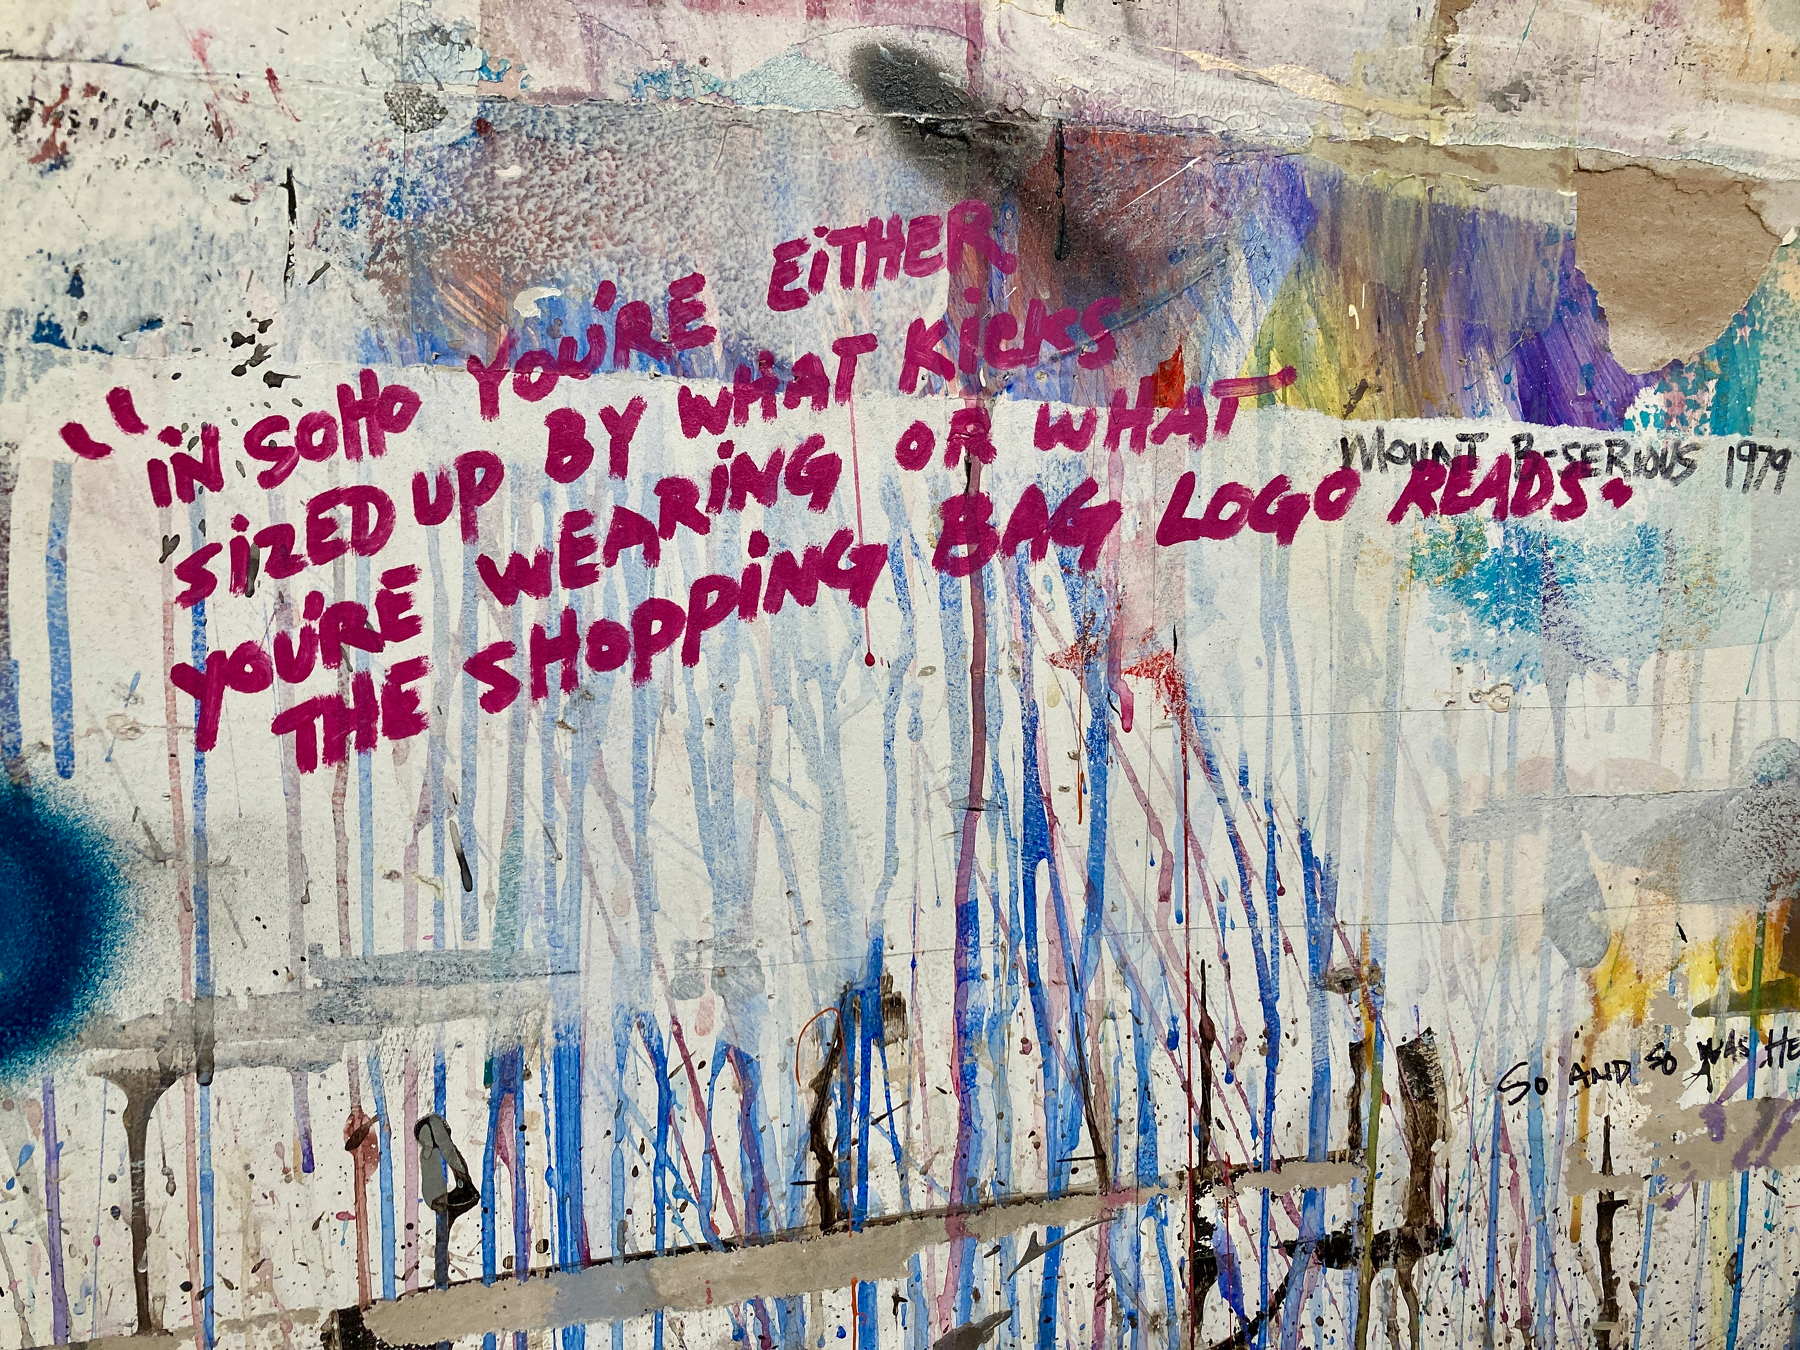 "IN SOHO YOU'RE EiTHER
SiZED UP BY WHAT KicKS
YOU'RE WEARiNG OR WHAT
THE SHOPPiNG BAG LOGO READS.
MOUNT B-SERIOUS 1979
SO AND SO WAS HE